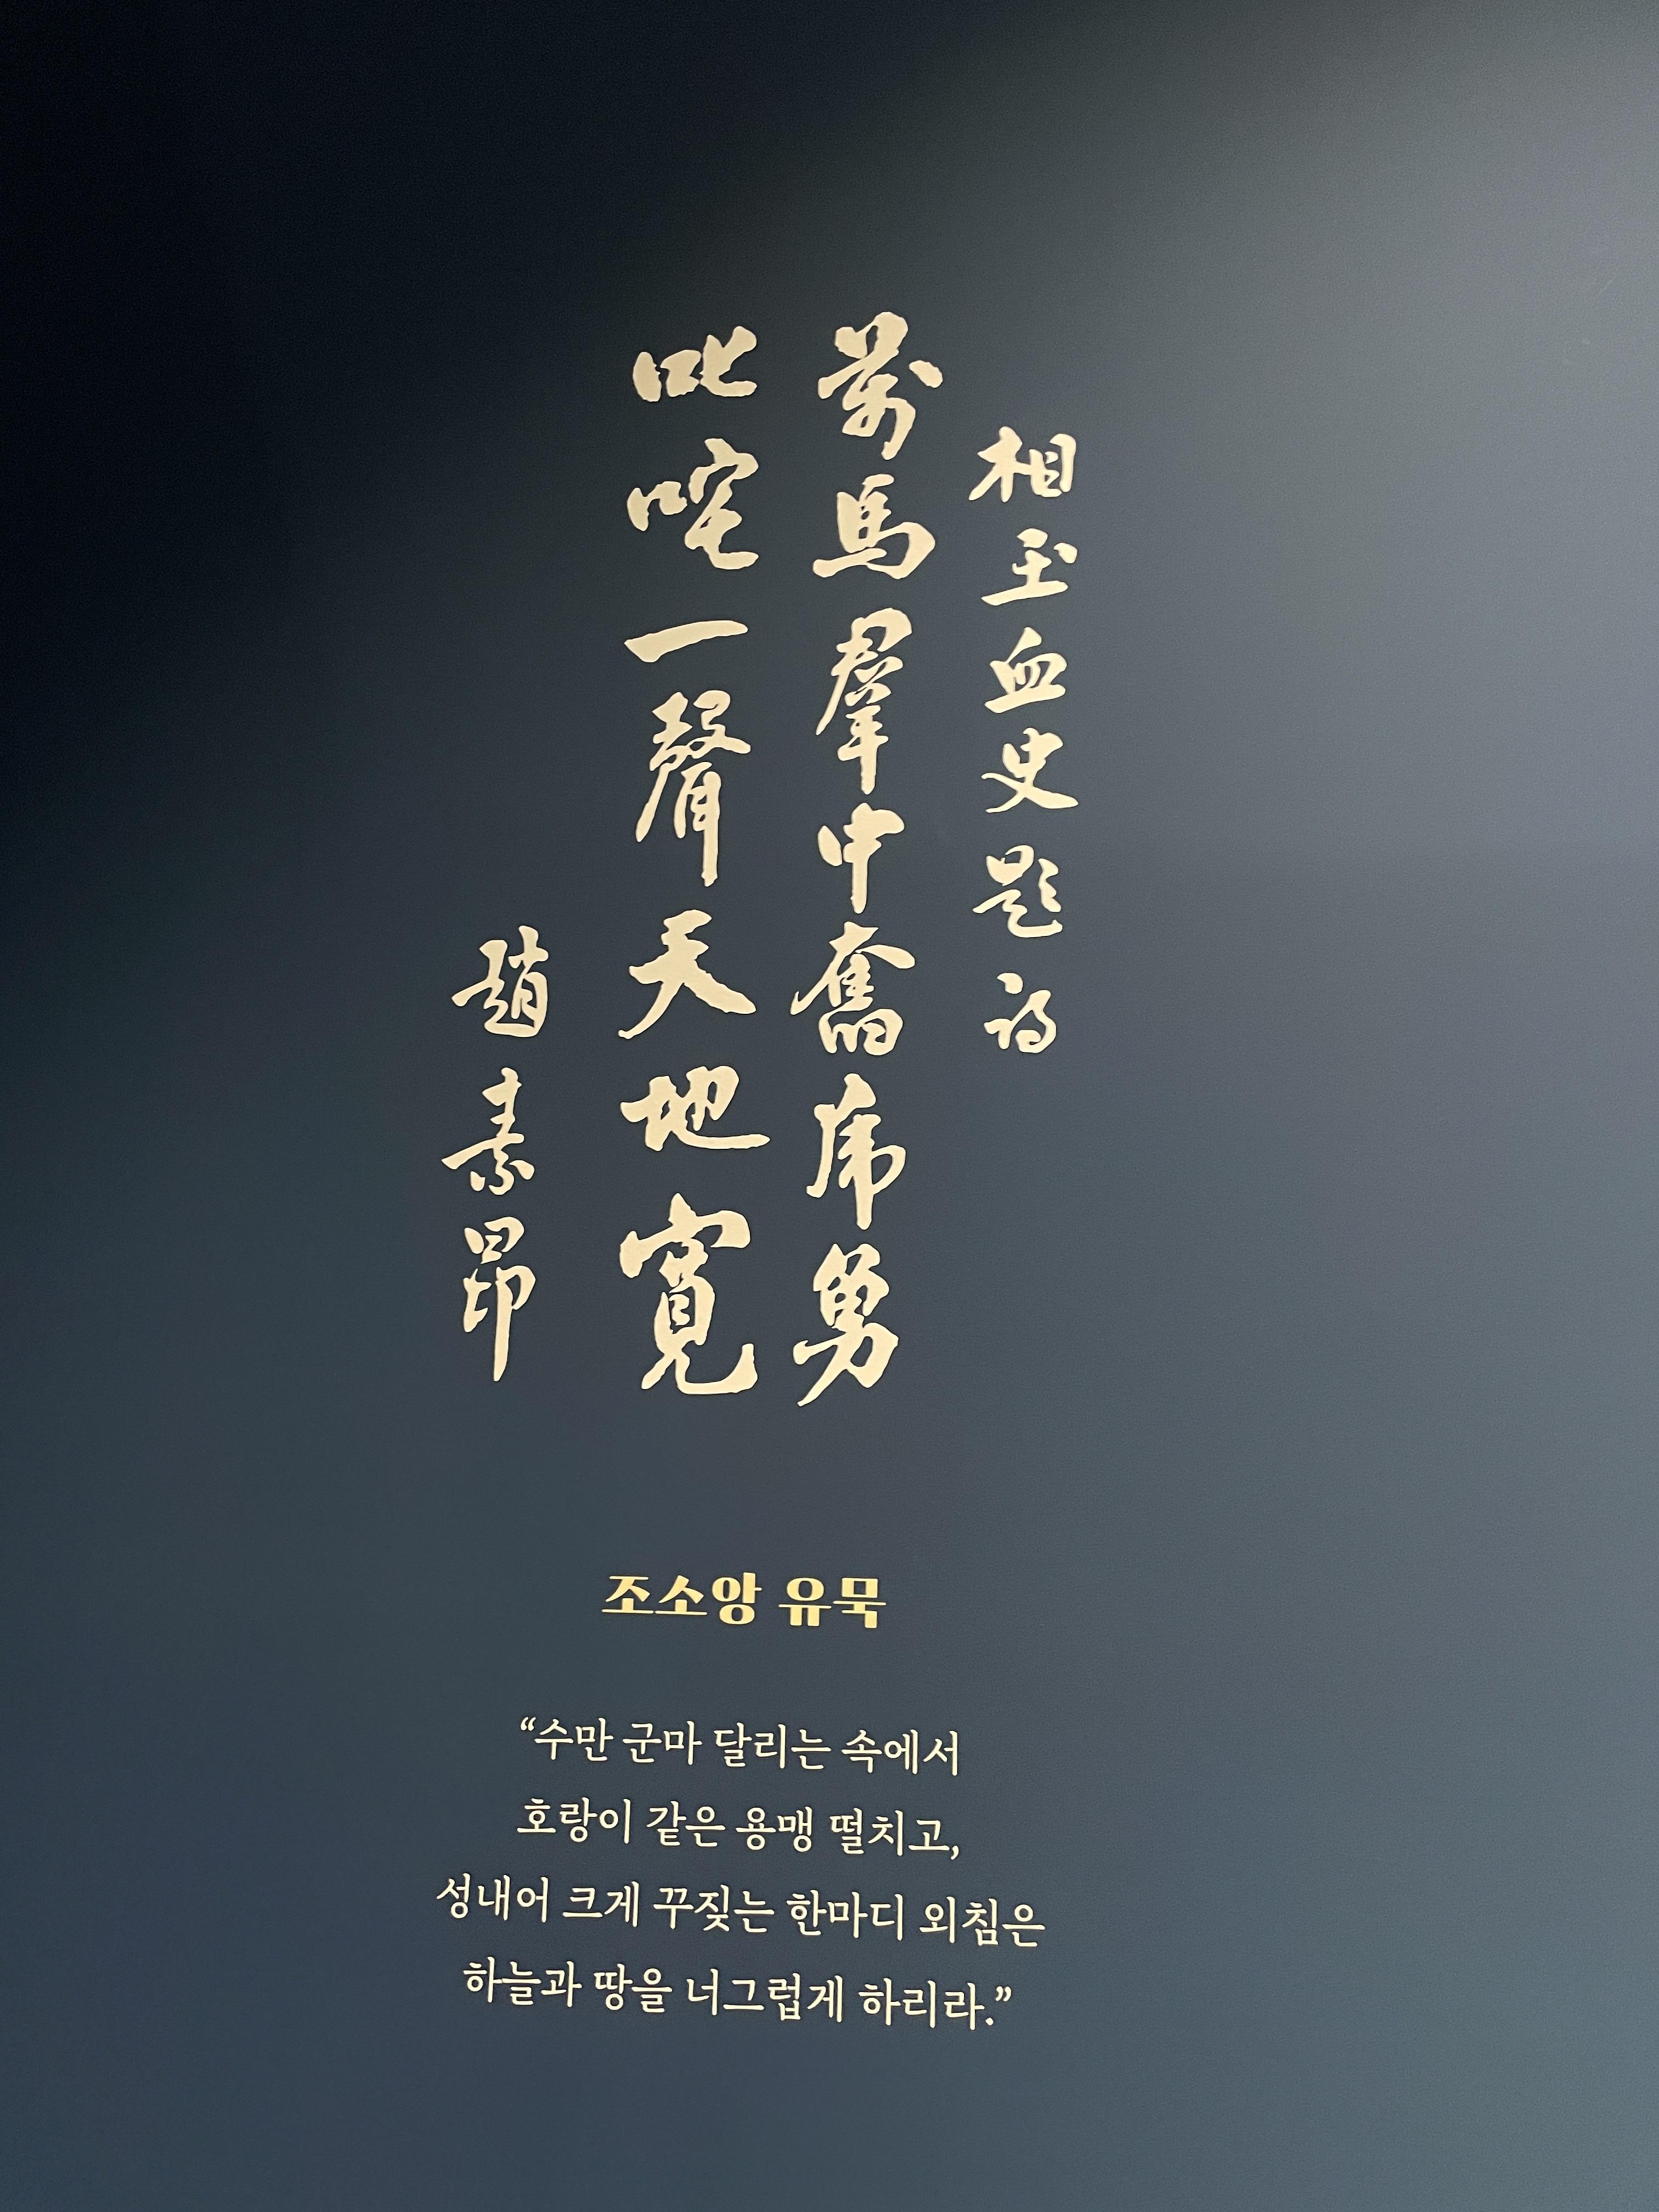 相玉血史題詩
萬馬羣中奮虎勇
叱咤一聲天地寬
趙素昂
조소앙 유묵
“수만 군마 달리는 속에서
호랑이 같은 용맹 떨치고,
성내어 크게 꾸짖는 한마디 외침은
하늘과 땅을 너그럽게 하리라.”